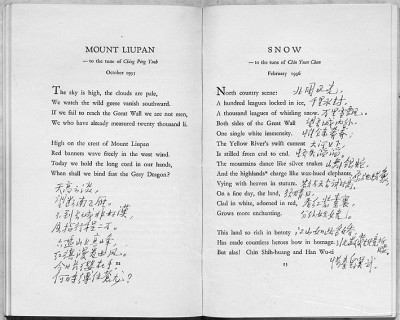 MOUNT LIUPAN
— to the tune of Ching Ping Yueh
October 1935
The sky is high, the clouds are pale,
We watch the wild geese vanish southward.
If we fail to reach the Great Wall we are not men,
We who have already measured twenty thousand li.
High on the crest of Mount Liupan
Red banners wave freely in the west wind.
Today we hold the long cord in our hands,
When shall we bind fast the Grey Dragon?
天高云淡,
望断南飞雁。
不到长城非好汉,
屈指行程二万。
六盘山上高峰,
红旗漫卷西风。
今日长缨在手,
何时缚住苍龙?
22
SNOW
— to the tune of Chin Yuan Chun
February 1936
North country scene: 北国风光,
A hundred leagues locked in ice, 千里冰封,
A thousand leagues of whirling snow. 万里雪飘。
Both sides of the Great Wall 望长城内外,
One single white immensity. 惟余莽莽;
The Yellow River's swift current 大河上下,
Is stilled from end to end. 顿失滔滔。
The mountains dance like silver snakes 山舞银蛇,
And the highlands* charge like wax-hued elephants, 原驰蜡象,
Vying with heaven in stature. 欲与天公试比高。
On a fine day, the land, 须晴日,
Clad in white, adorned in red, 看红装素裹,
Grows more enchanting. 分外妖娆。
This land so rich in beauty 江山如此多娇,
Has made countless heroes bow in homage. 引无数英雄竞折腰。
But alas! Chin Shih-huang and Han Wu-ti
惜秦皇汉武,
23